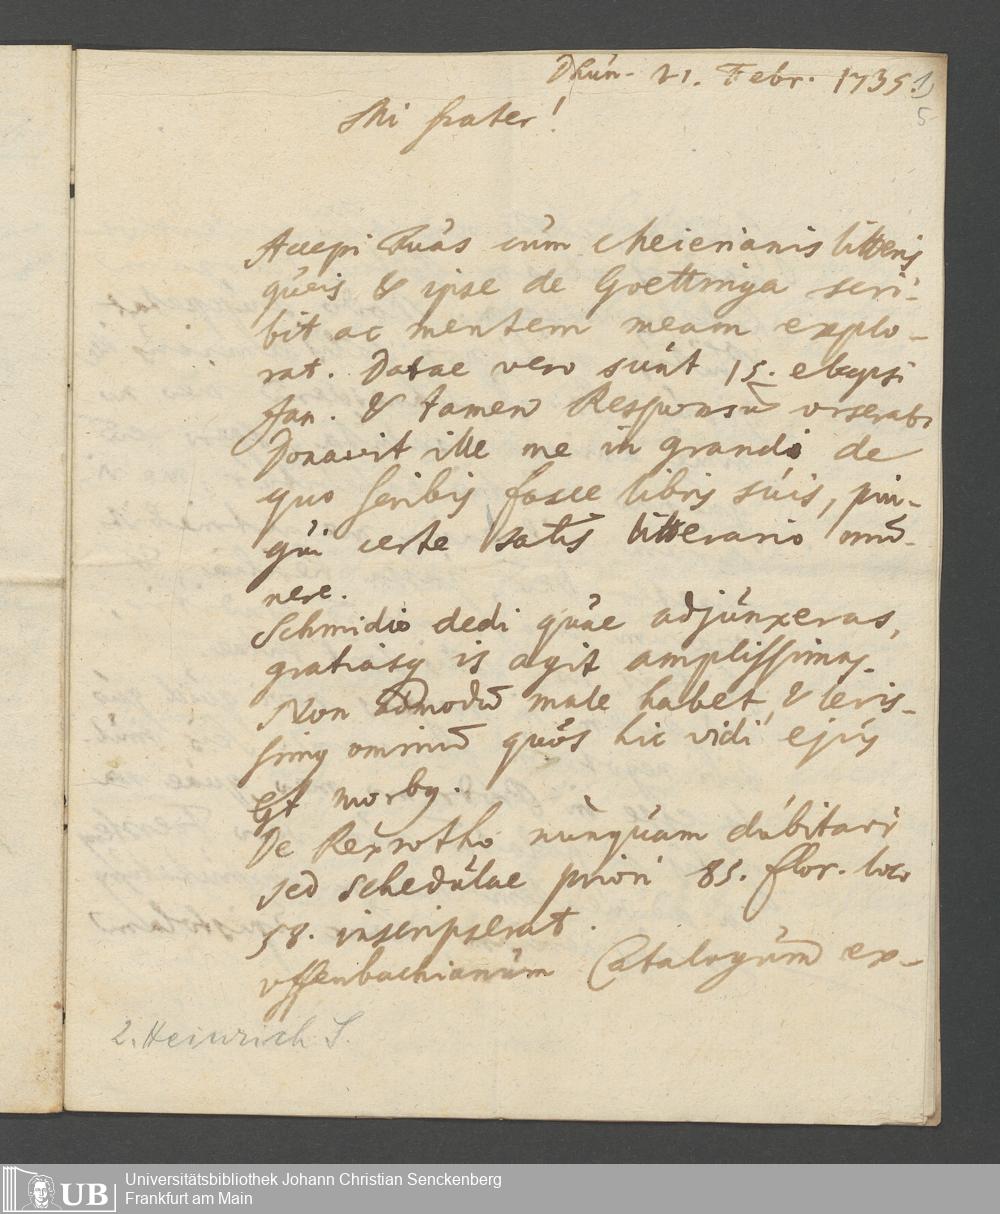 Dhún. 21. Febr. 1735. 1)
5
Mi frater!
Accepi Tuas cum cheierianis litteris
queis & ipse de Goettinga scri-
bit ac mentem meam explo-
rat. Datae vero sunt 15. elapsi
Jan. & tamen Responsū
Donavit ille me in grandi de
quo scribis fasce libris suis, pin-
gui certe satis litterario mū-
nere.
Schmidio dedi quae adjunxeras,
gratiasq is agit amplissimas.
Non admodū male habet, & levis-
simus omniū quos hic vidi ejus
est morbus.
De Rexrotho nunquam dubitavi
sed schedulae priori 85. flor. loco
58. inscripserat.
Uffenbachianum Catalogum ex-
2. Heinrich S.
UB
Universitätsbibliothek Johann Christian Senckenberg
Frankfurt am Main